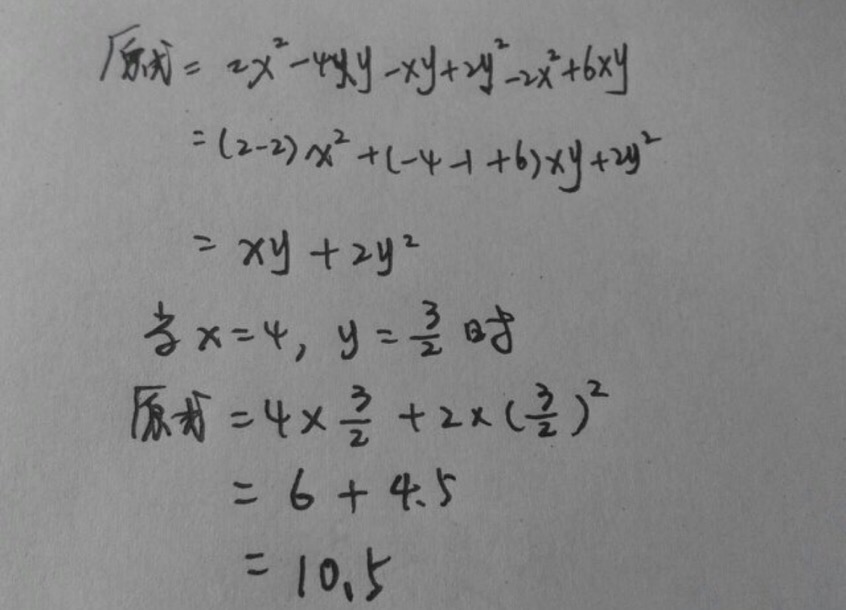 原式 = 2x² - 4xy - xy + 2y² - 2x² + 6xy
= (2-2)x² + (-4-1+6)xy + 2y²
= xy + 2y²
当 x = 4, y = 3/2 时
原式 = 4 × 3/2 + 2 × (3/2)²
= 6 + 4.5
= 10.5